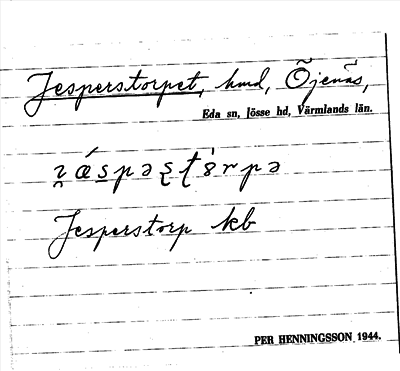 Jesperstorpet, hmd, Õjenäs,
Eda sn, Jösse hd, Värmlands län.
Jesperstorp kb
PER HENNINGSSON 1944.